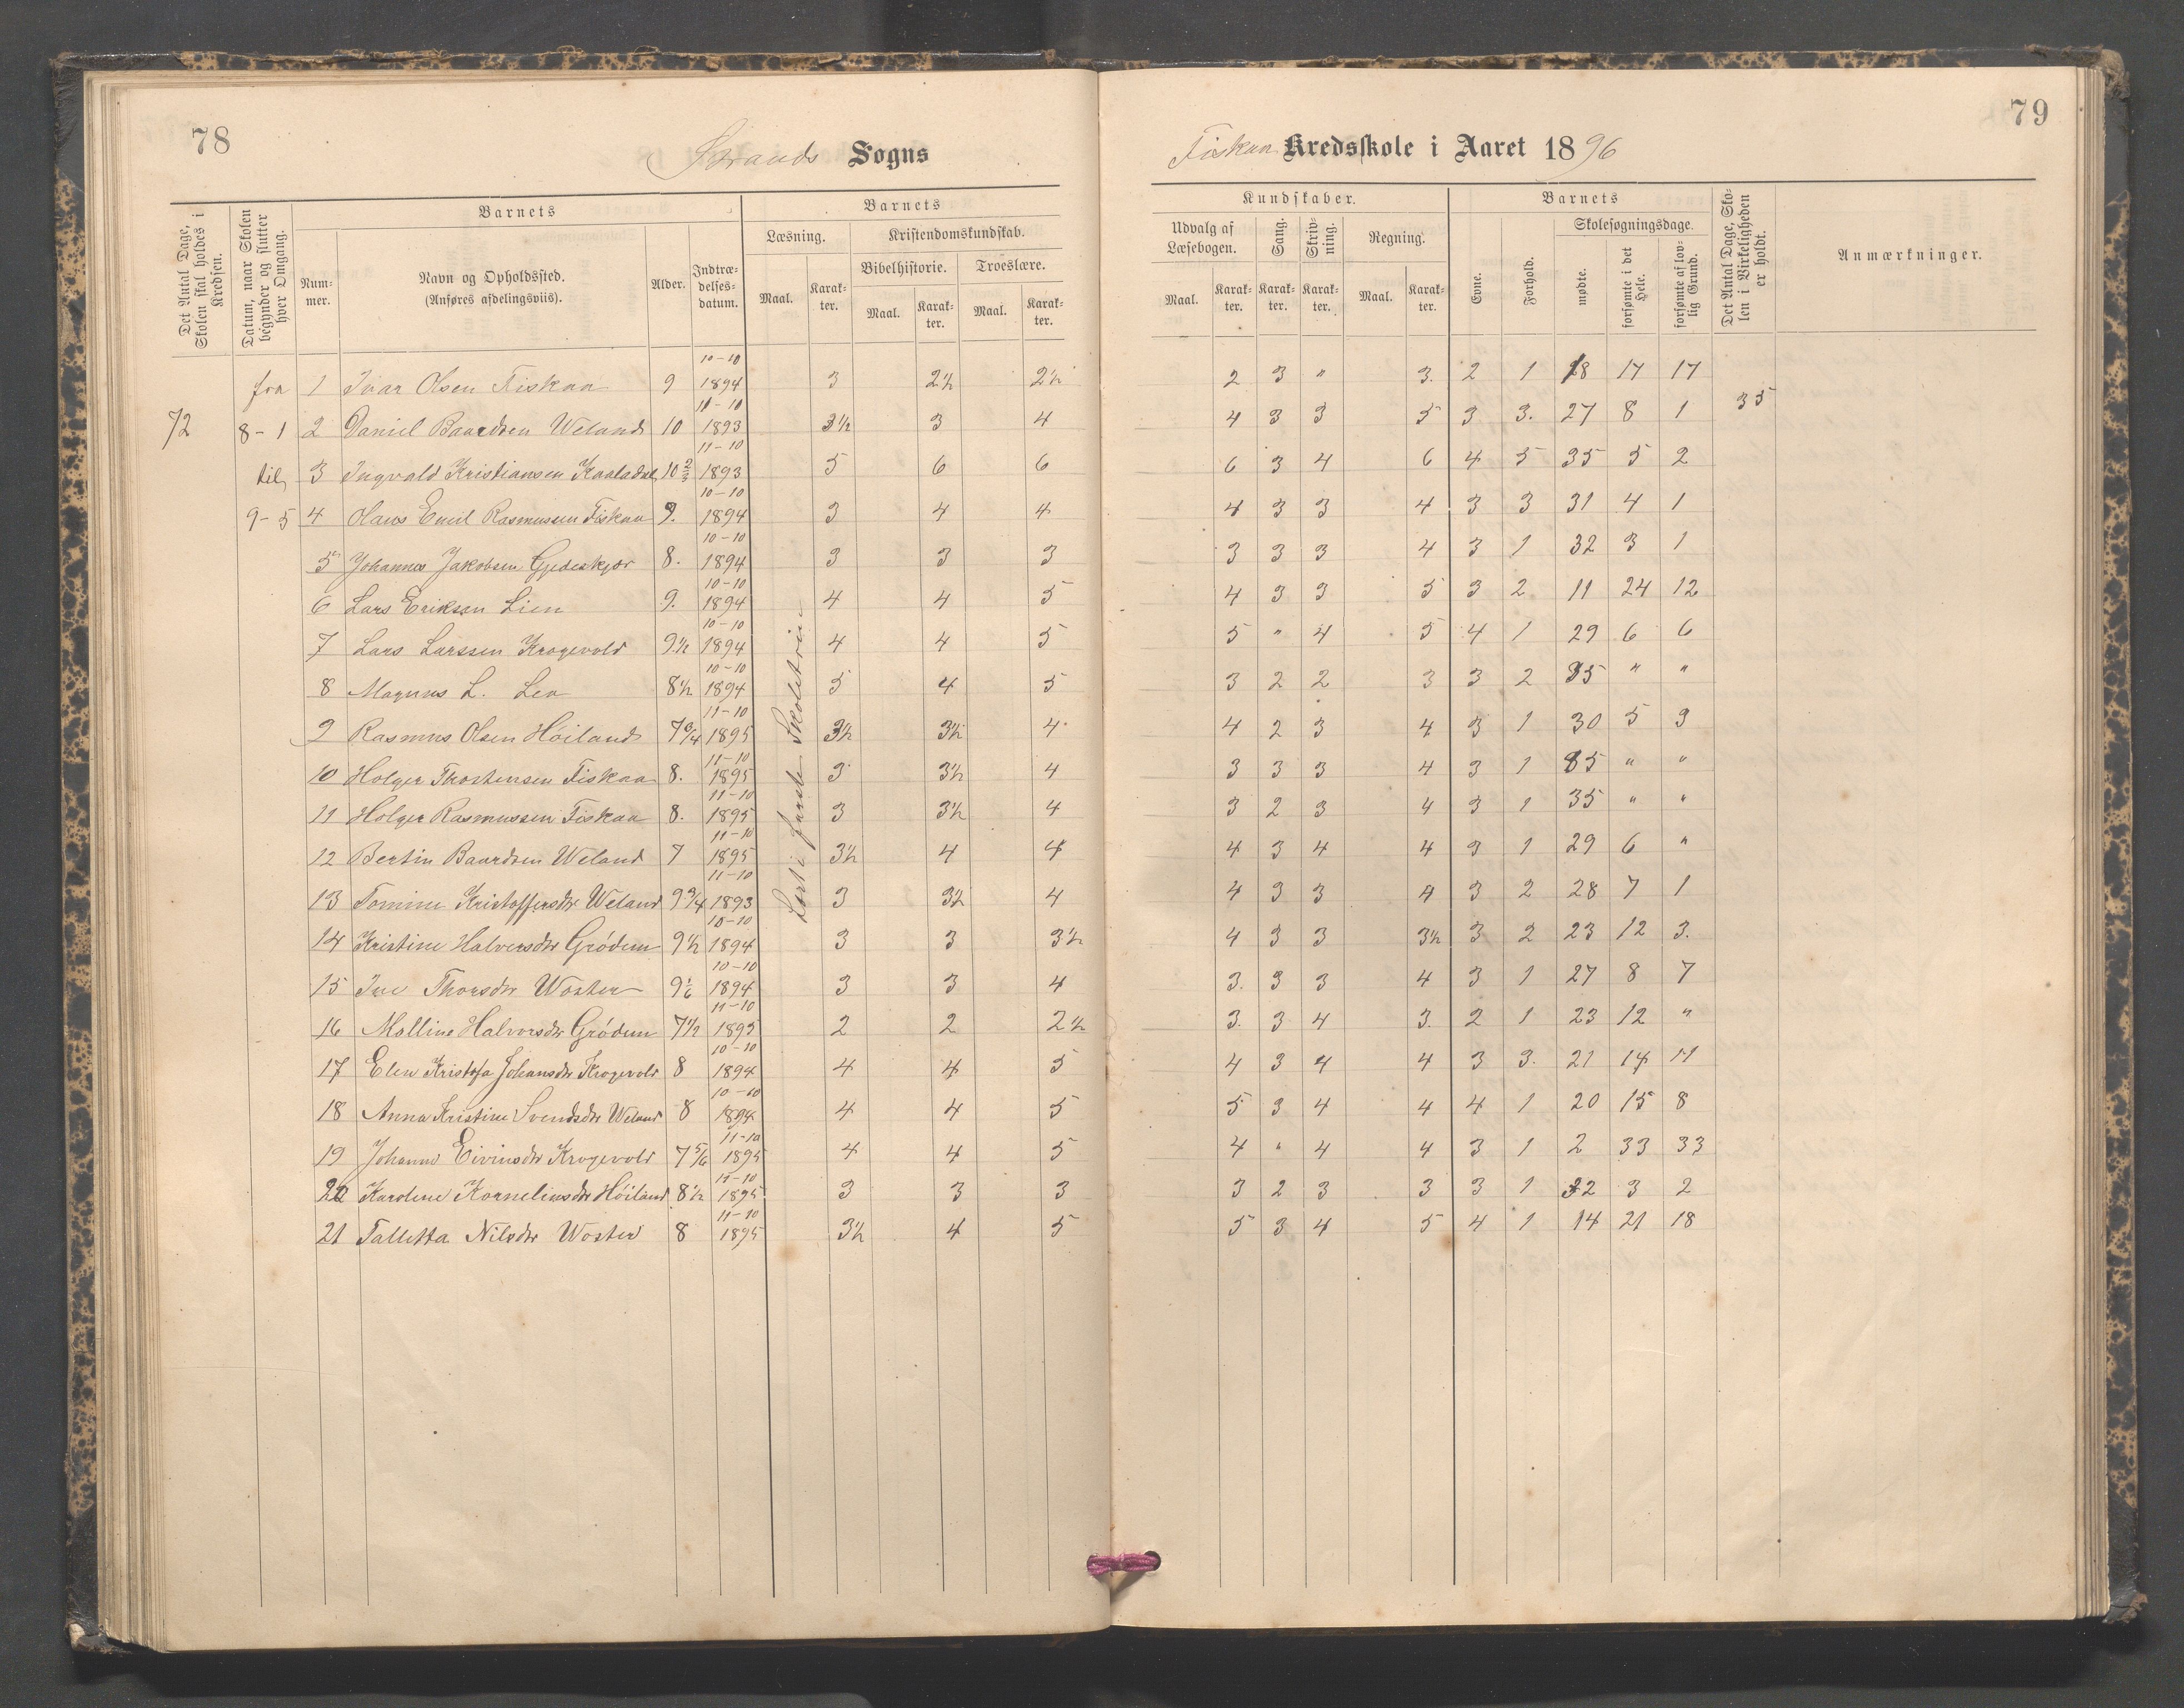 78
Strands Sogns
Det Antal Dage, Skolen skal holdes i Kredsen.
Datum, naar Skolen begynder og slutter hver Omgang.
Barnets
Barnets
Num-
mer.
Navn og Opholdssted.
(Anføres afdelingsviis).
Alder.
Indtræ-
delses-
datum.
Læsning.
Kristendomskundskab.
Bibelhistorie.
Troeslære.
Maal.
Karak-
ter.
Maal.
Karak-
ter.
Maal.
Karak-
ter.
72
fra
8-1
til
9-5
1 Ivar Olsen Fiskaa 9 10-10 1894 3 2½ 2½
2 Daniel Baardsen Weland 10 11-10 1893 3½ 3 4
3 Ingvald Kristiansen Kaaladal 10⅔ 11-10 1893 5 6 6
4 Olaus Emil Rasmussen Fiskaa 9. 10-10 1894 3 4 4
5 Johannes Jakobsen Gjedeskjær 8. 10-10 1894 3 3 3
6 Lars Eriksen Lien 9. 10-10 1894 4 4 5
7 Lars Larssen Krogevold 9½ 10-10 1894 4 4 5
8 Magnus L. Lea 8½ 10-10 1894 5 4 5
9 Rasmus Olsen Høiland 7¾ 11-10 1895 3½ 3½ 4
10 Holger Thorstensen Fiskaa 8. 11-10 1895 3 3½ 4
11 Holger Rasmussen Fiskaa 8. 11-10 1895 3 3½ 4
12 Bertin Baardsen Weland 7 11-10 1895 3½ 4 4
13 Tomine Kristoffersdtr Weland 9¾ 11-10 1893 3 3½ 4
14 Kristine Halvorsdtr Grødem 9½ 10-10 1894 3 3 3½
15 Ine Thorsdtr Woster 9⅙ 10-10 1894 3 3 4
16 Malline Halvorsdtr Grødem 7½ 11-10 1895 2 2 2½
17 Elen Kristofa Johansdtr Krogevold 8 10-10 1894 4 4 5
18 Anna Kristine Svendsdtr Weland 8 10-10 1894 4 4 5
19 Johanne Eivindsdtr Krogevold 7⅚ 11-10 1895 4 4 5
20 Karoline Korneliusdtr Høiland 8½ 11-10 1895 3 3 3
21 Talletta Nilsdtr Woster 8 11-10 1895 3½ 4 5
Læst i første Skoletrin
79
Fiskaa Kredsskole i Aaret 1896
Kundskaber.
Barnets
Det Antal Dage, Sko-
len i Virkeligheden
er holdt.
Anmærkninger.
Udvalg af
Læsebogen.
Sang.
Skriv-
ning.
Regning.
Evne.
Forhold.
Skolesøgningsdage.
mødte.
forsømte i det
Hele.
forsømte af lov-
lig Grund.
Maal.
Karak-
ter.
Karak-
ter.
Karak-
ter.
Maal.
Karak-
ter.
2 3 " 3. 2 1 18 17 17
35
4 3 3 5 3 3. 27 8 1
6 3 4 6 4 5 35 5 2
4 3 3 4 3 3 31 4 1
3 3 3 4 3 1 32 3 1
4 3 3 5 3 2 11 24 12
5 " 4 5 4 1 29 6 6
3 2 2 3 3 2 35 " "
4 2 3 4 3 1 30 5 3
3 3 3 4 3 1 35 " "
3 2 3 4 3 1 35 " "
4 3 4 4 3 1 29 6 "
4 3 3 4 3 2 28 7 1
4 3 3 3½ 3 2 23 12 3.
3. 3 3 4 3 1 27 8 7
3. 3 4 3. 2 1 23 12 "
4 3 4 4 3 3. 21 14 14
5 3 4 4 4 1 20 15 8
4 " 4 4 3 1 2 33 33
3 2 3 3 3 1 32 3 2
5 3 4 5 4 1 14 21 18